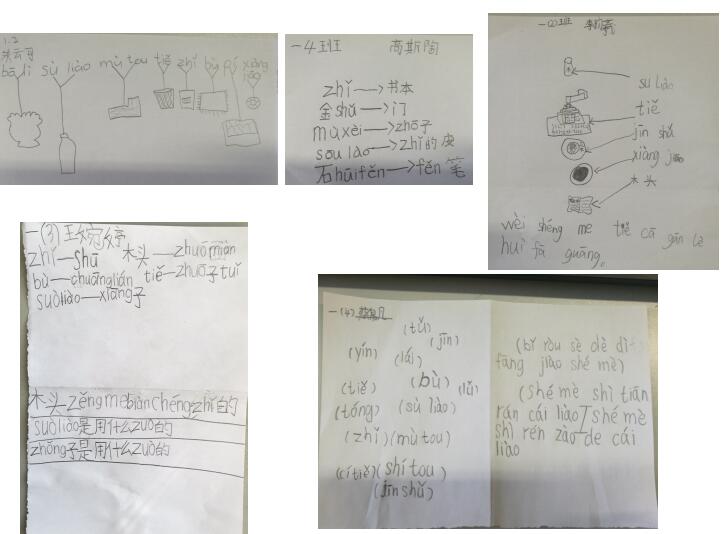 1.2
bō li sù liào mù tou tiě zhǐ bù pí xiàng
jiāo
一4班 高斯陶
zhǐ→书本
金shǔ→门
mù xèi→zhōzi
sou lào→zhǐ的皮
石huīfěn→fěn 笔
一(2)班
su liào
tiě
jīn shǔ
xiàng jiāo
木头
wèi shéng me tiě cā gān lè
huī fā guāng。
一(3)班
zhǐ—shū 木头—zhuōmiàn
bù—chuānglián tiě—zhuō子tuǐ
suòliào—xiāng子
木头zěngmebiàn chéngzhǐ的
suòliào是用什么zuò的
zhōng子是用什么zuò的
一(4)
(tǔ)
(jīn)
(yín) (lái)
(tiě) (bù) (lǚ)
(tóng) (sù liào)
(zhǐ) (mù tou)
(cí tiě) (shí tou)
(jīn shǔ)
(bǐ ròu sè dè dì
fāng jiào shé mè)
(shé mè shì tiān
rán cái liào shé mè
shì rén zào de cái
liào